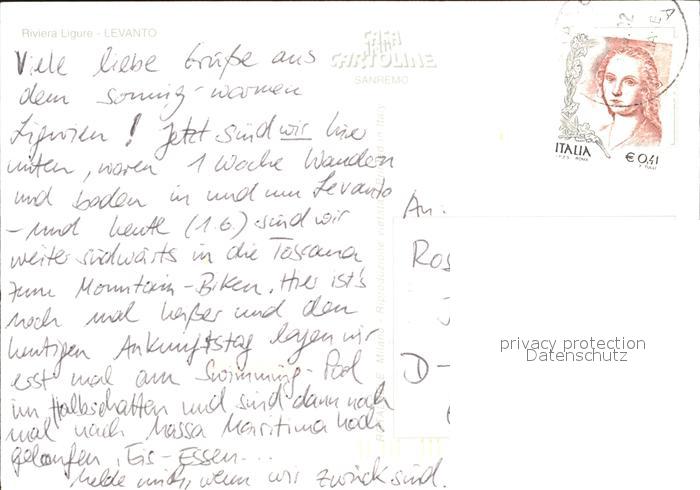 Riviera Ligure - LEVANTO
CASA DELLE CARTOLINE
SANREMO
Viele liebe Grüße aus
dem sonnig-warmen
Ligurien! Jetzt sind wir hier
unten, waren 1 Woche Wandern
und baden in und um Levanto
- und heute (1.6.) sind wir
weiter südwärts in die Toscana
zum Mountain-Biken. Hier ist's
noch mal heißer und den
heutigen Ankunftstag lagen wir
erst mal am Swimming-Pool
im Halbschatten und sind dann noch
mal nach Massa Maritima hoch
gelaufen, Eis-Essen...
Melde mich, wenn wir zurück sind.
An:
Ros
D-
ITALIA
€ 0,41
privacy protection
Datenschutz